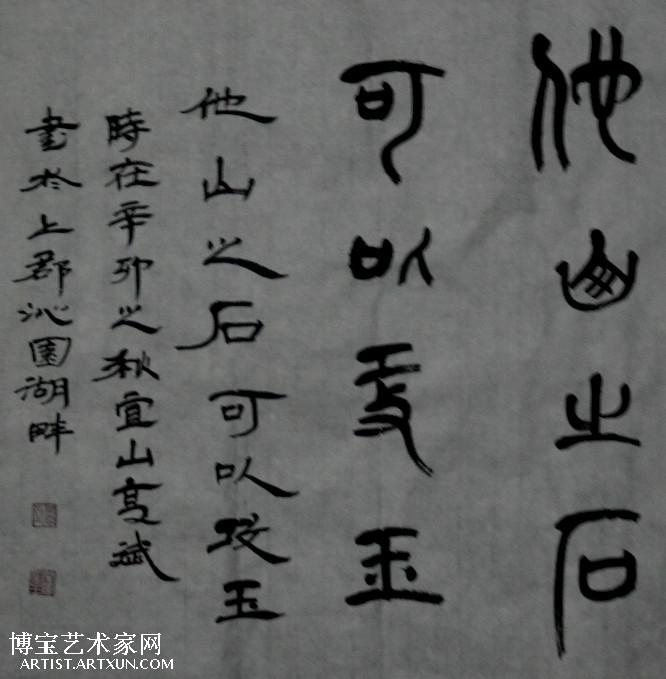 他山之石
可以攻玉
他山之石可以攻玉
時在辛卯之秋宜山斌
書於上郡沁園湖畔
博宝艺术家网
ARTIST.ARTXUN.COM